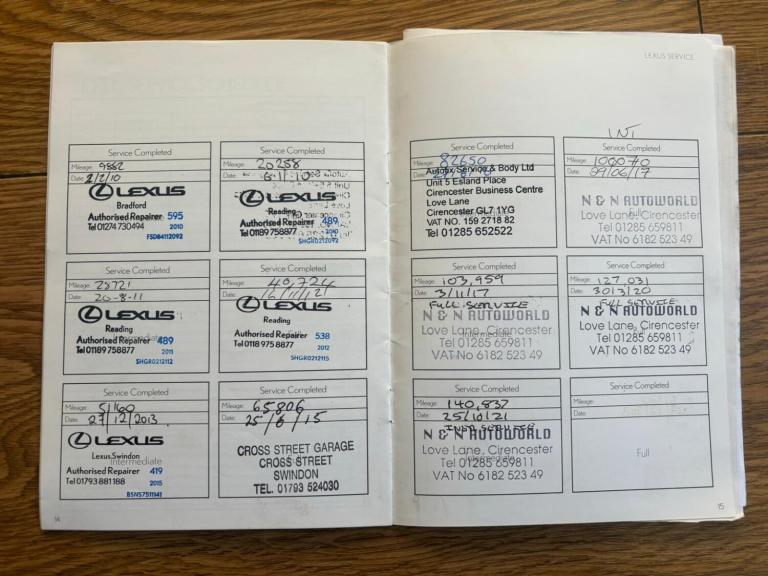 LEXUS SERVICE
Service Completed
Mileage: 9882
Date: 2/2/10
LEXUS
Bradford
Authorised Repairer 595
Tel 01274 730494 2010
FSD84112092
Service Completed
Mileage: 20258
Date:
LEXUS
Reading
Authorised Repairer 489
Tel 01189 758877
SHGR0212092
Service Completed
Date: 20-8-11
LEXUS
Reading
Intermediate
Authorised Repairer 489
Tel 01189 758877 2011
SHGR0212112
Service Completed
Mileage: 40,724
Date:
LEXUS
Reading
Authorised Repairer 538
Tel 0118 975 8877 2012
SHGR0212115
Service Completed
Mileage: 51160
Date: 27/12/2013
LEXUS
Lexus Swindon
Intermediate
Authorised Repairer 419
Tel 01793 881188 2015
BSNS7511141
Service Completed
Mileage: 65806
Date: 25/6/15
CROSS STREET GARAGE
CROSS STREET
SWINDON
TEL. 01793 524030
14
Service Completed
Mileage: 82650
Date:
Autofix Service & Body Ltd
Unit 5 Esland Place
Cirencester Business Centre
Love Lane
Cirencester GL7 1YG
VAT NO. 159 2718 82
Tel 01285 652522
INT
Service Completed
Mileage: 100070
Date: 29/06/17
N & N AUTOWORLD
Full
Love Lane, Cirencester
Tel 01285 659811
VAT No 6182 523 49
Service Completed
Mileage: 103,959
Date: 3/11/17
FULL SERVICE
N & N AUTOWORLD
Love Lane, Cirencester
Intermediate
Tel 01285 659811
VAT No 6182 523 49
Service Completed
Mileage: 127 031
Date: 30/3/20
FULL SERVICE
N & N AUTOWORLD
Love Lane, Cirencester
Tel 01285 659811
VAT No 6182 523 49
Service Completed
Mileage: 140,837
Date: 25/10/21
N & N AUTOWORLD
Love Lane, Cirencester
Intermediate
Tel 01285 659811
VAT No 6182 523 49
Service Completed
Mileage:
Date:
Full
15